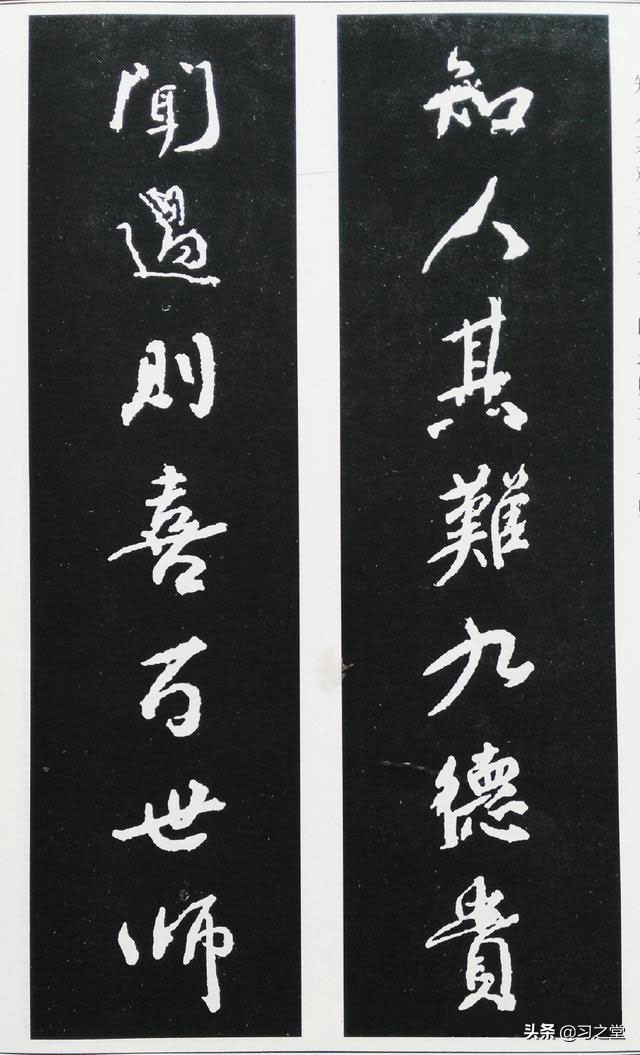 知人其難九德貴
聞過則喜百世師
头条 @习之堂